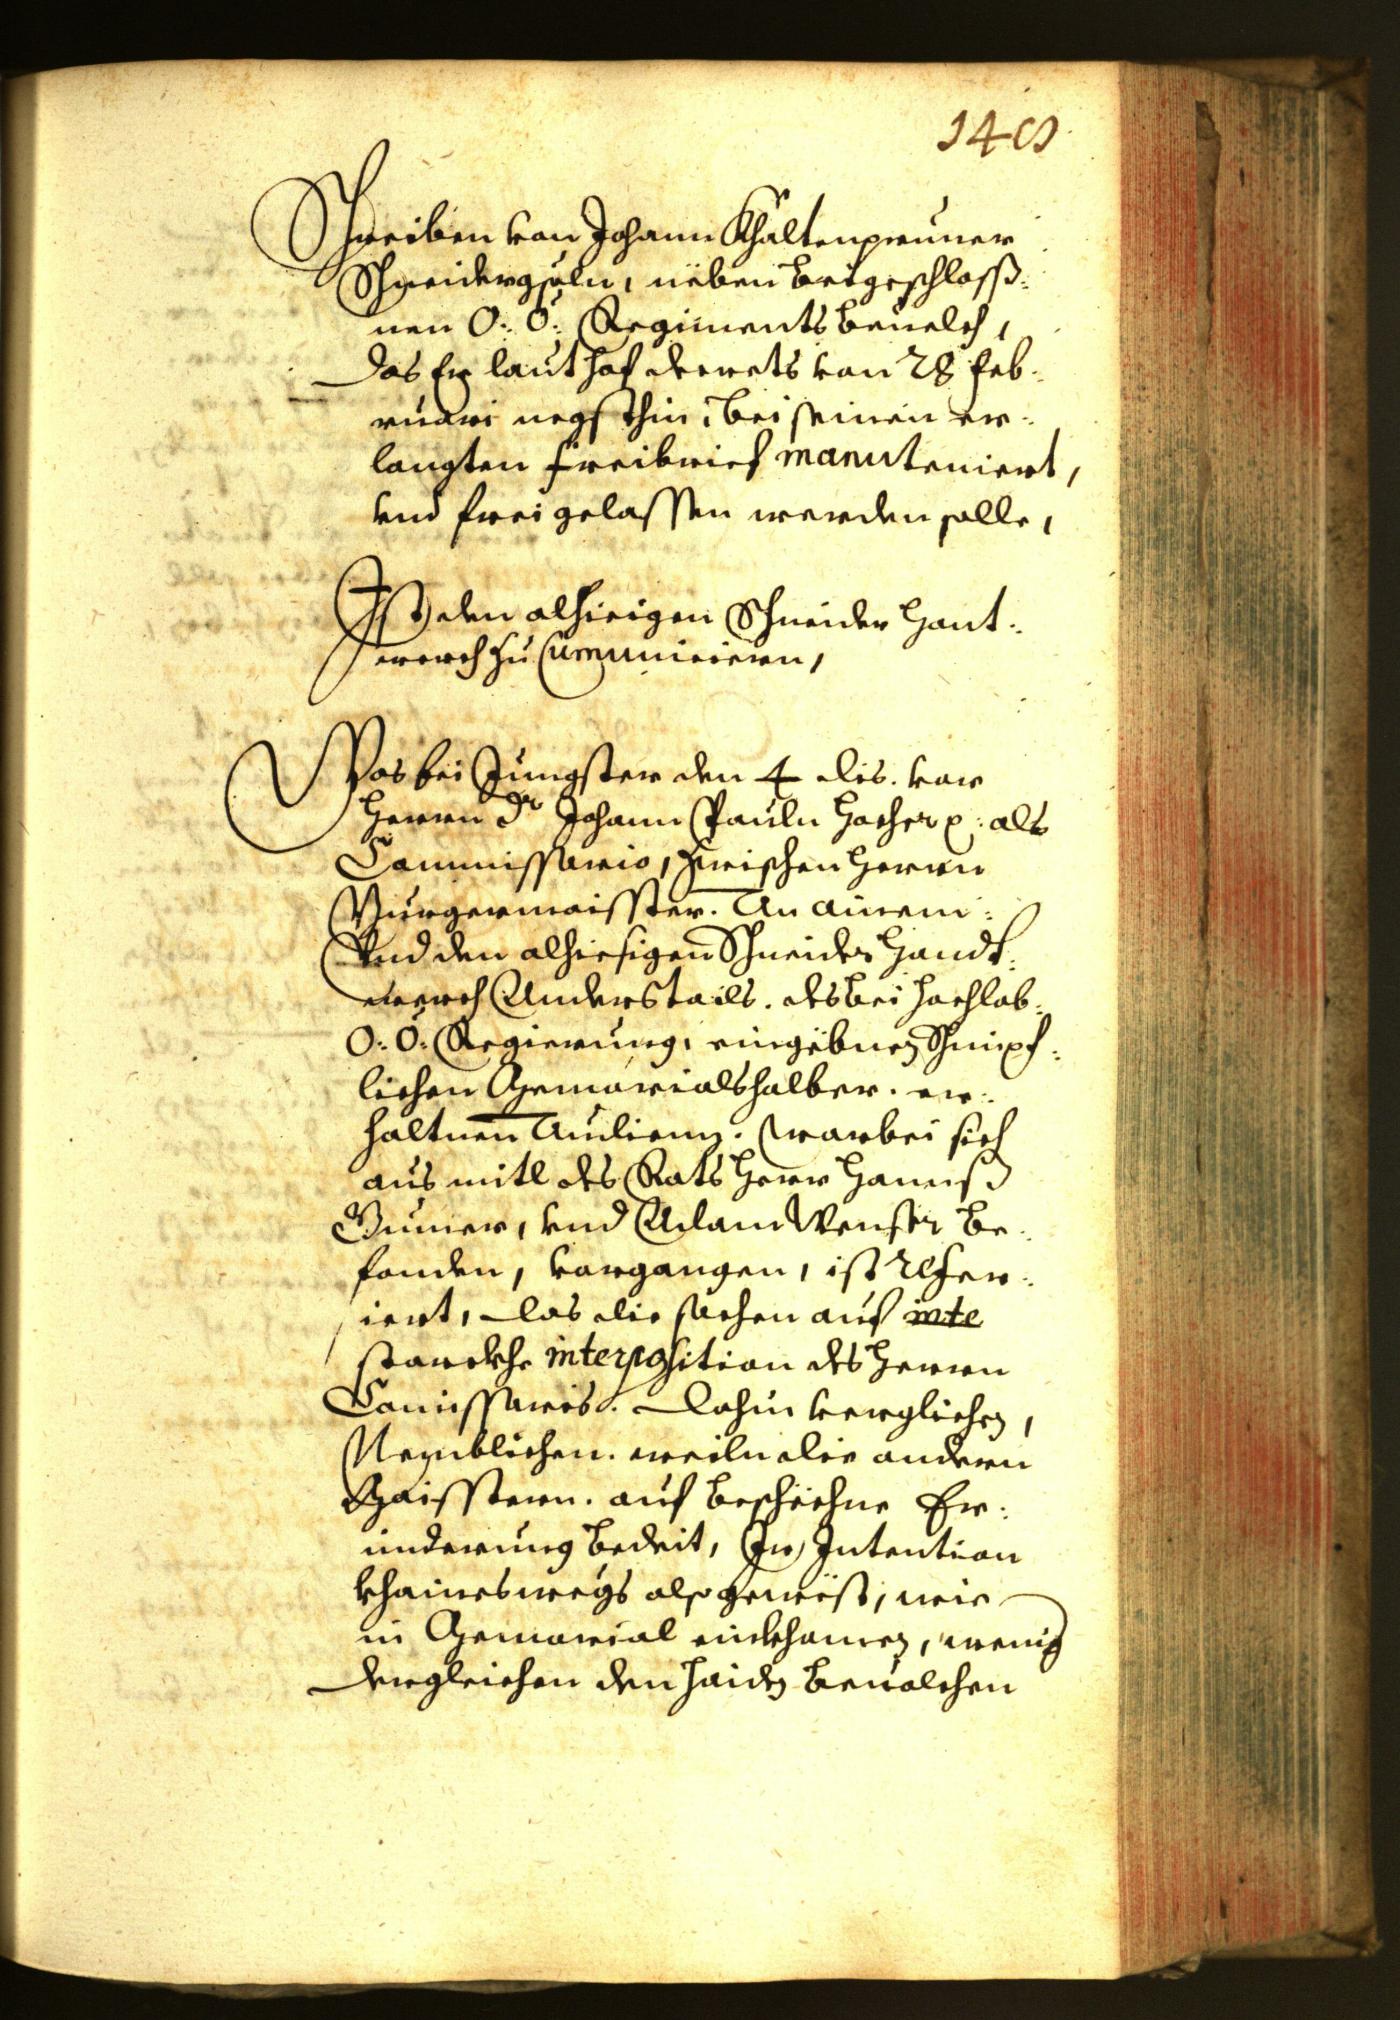 140
Schreiben von Johann Khältenprunner
Schneidergseln, neben beigeschloss:
nen O: Ö: Regiments beuelch,
Das Er laut hof decrets von 28 Feb:
ruari negsthin, bei seinen er:
langten freibrief manuteniert,
vnd frei gelassen werden solle,
Ist den alhieigen Schneider Hant:
werch zu Cumunicieren,
Was bei Jungster den 4 dis. vor
Herrn Dr Johann Pauln Hocher p: als
Commissario, zwischen Herrn
Burgermaisster. An ainem:
Vnd den alhiesigen Schneider Handt:
werch Anderstails. des bei hochlob:
O: Ö: Regierung, eingebnen Schimpf:
lichen Gemorials halber. er:
haltnen Audienz. Warbei sich
aus mitl des Rats Herr Hanns
vnd Adam Wenser be:
fonden, vorgangen, ist refer:
iert, das die sachen auf inte
starckhe interposition des Herrn
Comissaris. dahin verglichen,
Nemblichen. weiln die andern
Maisstern. auf beschehne Er:
inderung bedeit, Ir Intention
khaineswegs also gewest, wie
in Gemorial einkhomen, wenig
dergleichen den Haiden beuolchen